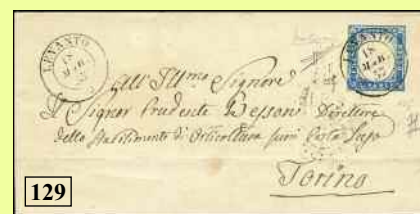 LEVANTO
18
MAR.
LEVANTO
18
MAR.
All'Ill.mo Signore
Il Signor Prudente Besson Direttore
dello Stabilimento di Orticoltura fuori Porta
Torino
129